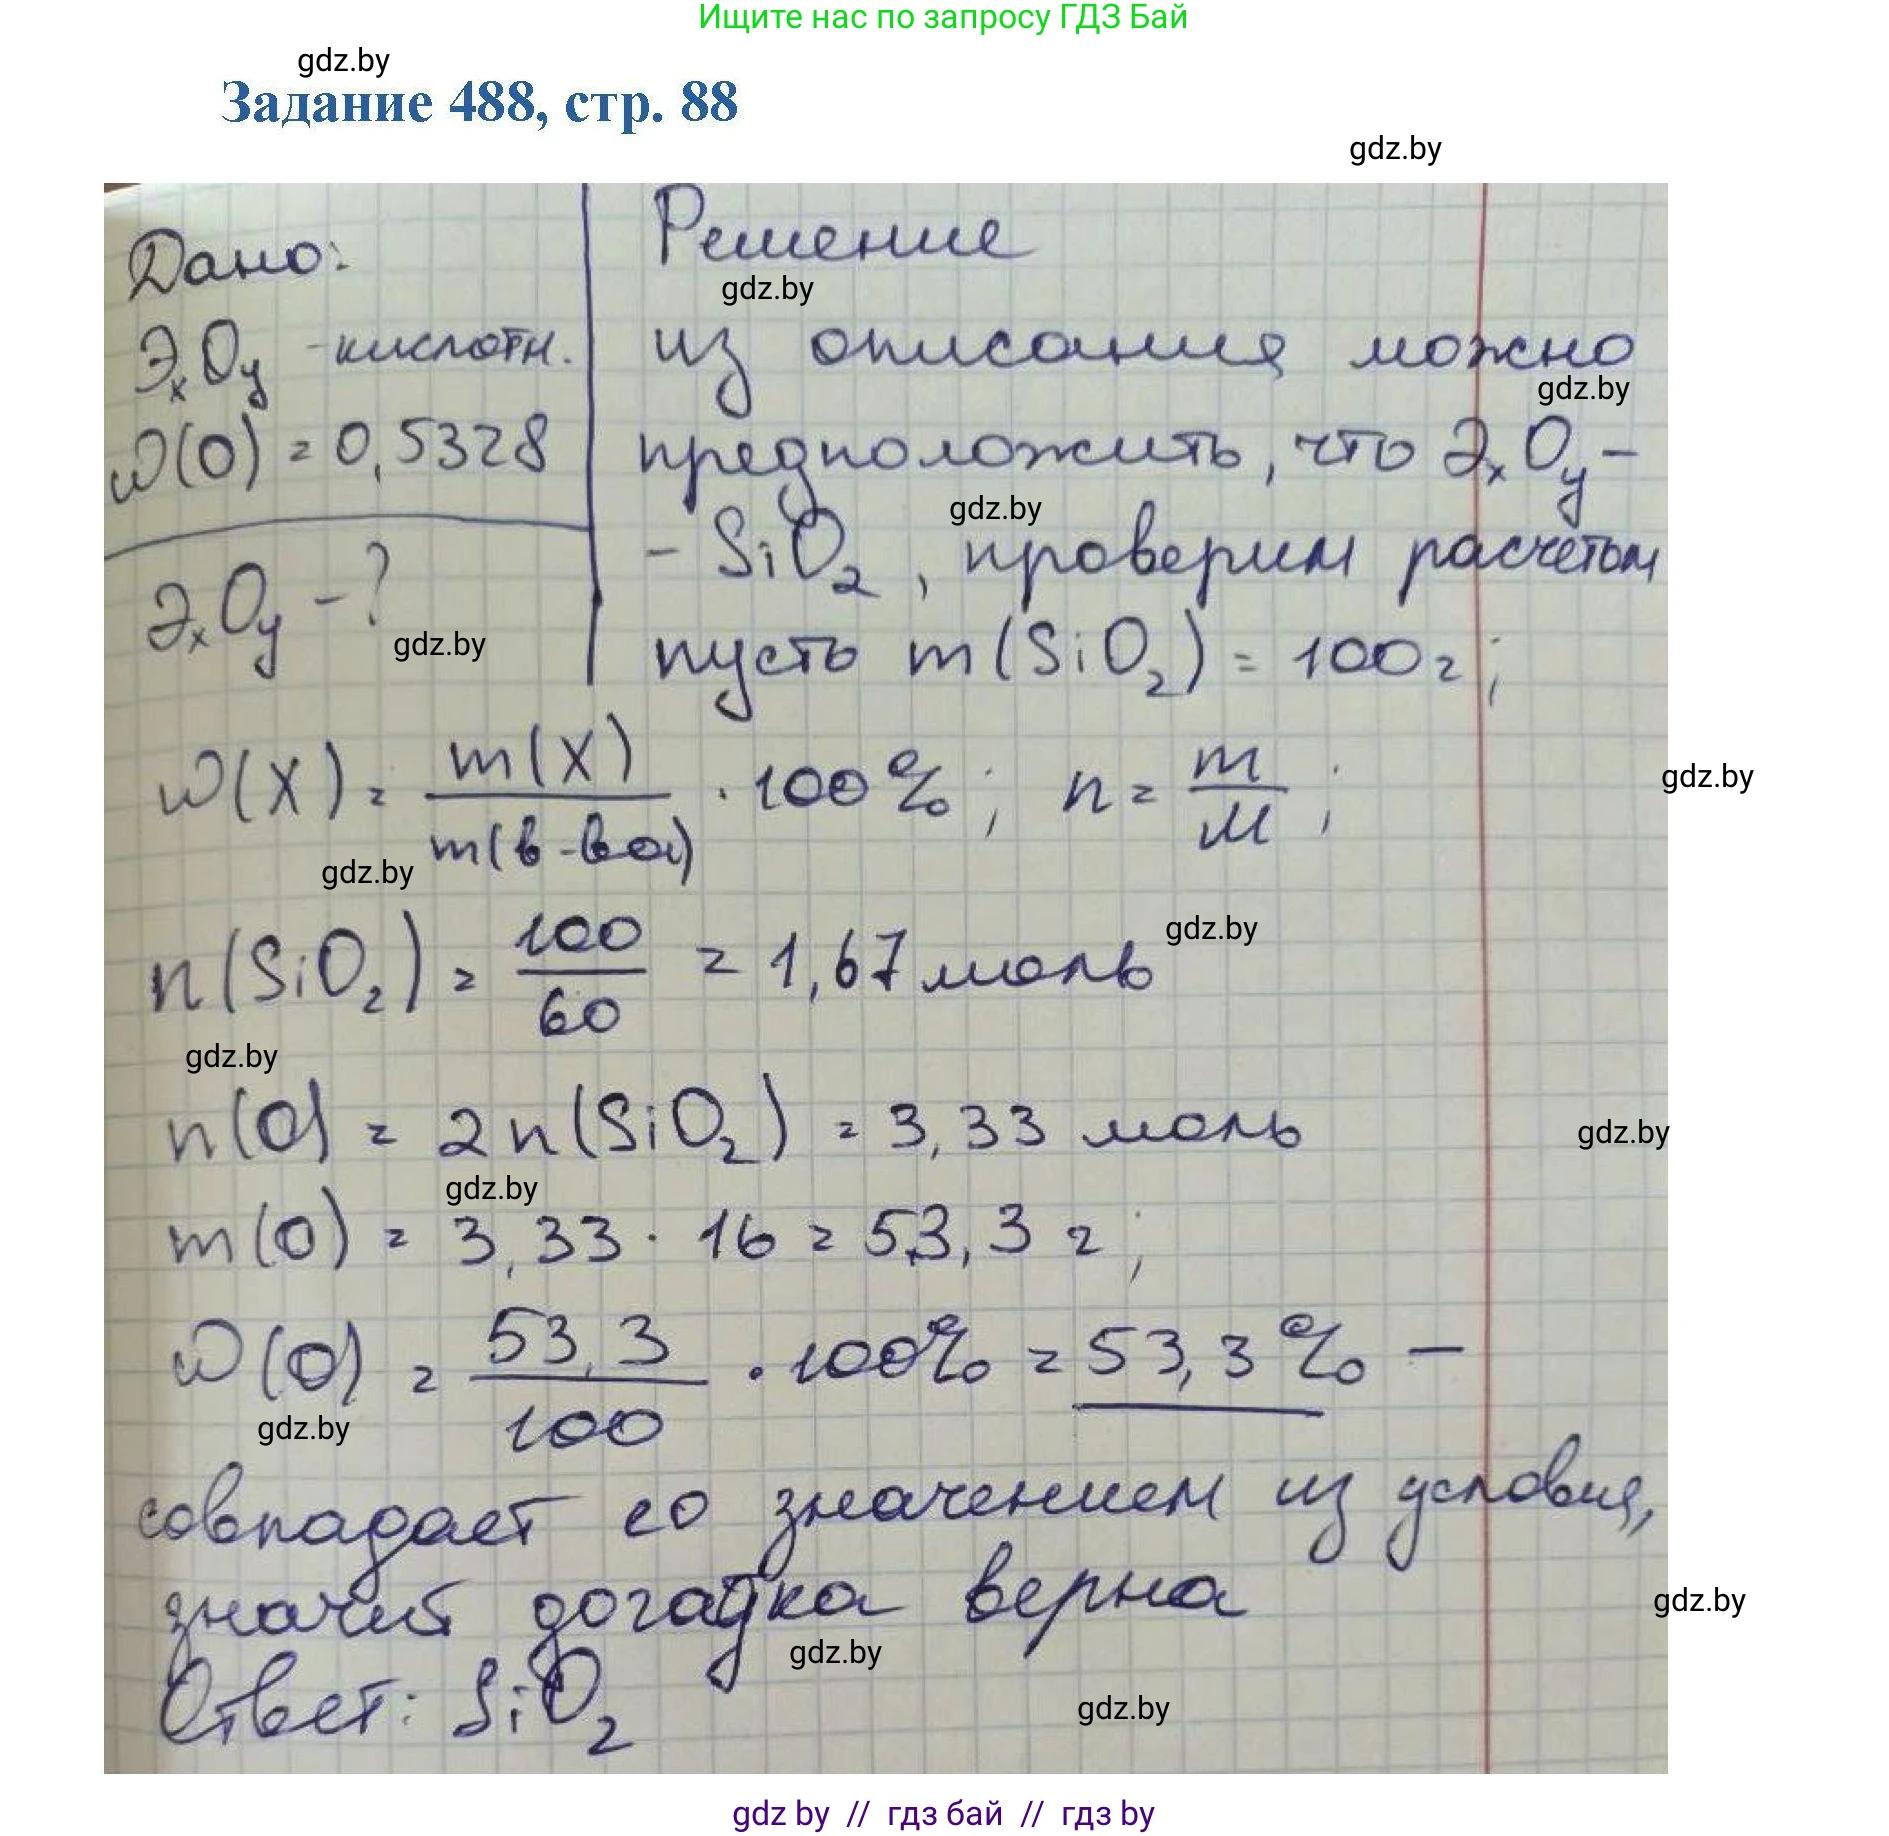 Ищите нас по запросу ГДЗ Бай
gdz.by
Задание 488, стр. 88
gdz.by
Дано:
ЭₓOᵧ - кислотн.
ω(O) = 0,5328
ЭₓOᵧ - ?
gdz.by
Решение
gdz.by
из описания можно
gdz.by
предположить, что ЭₓOᵧ -
gdz.by
- SiO₂, проверим расчетом
пусть m(SiO₂) = 100 г;
ω(X) = m(X) / m(в-ва) · 100%; n = m / M;
gdz.by
gdz.by
gdz.by
n(SiO₂) = 100 / 60 = 1,67 моль
gdz.by
n(O) = 2n(SiO₂) = 3,33 моль
gdz.by
gdz.by
m(O) = 3,33 · 16 = 53,3 г;
ω(O) = 53,3 / 100 · 100% = 53,3% -
gdz.by
совпадает со значением из условия,
значит догадка верна
gdz.by
gdz.by
Ответ: SiO₂
gdz.by
gdz by // гдз бай // гдз by